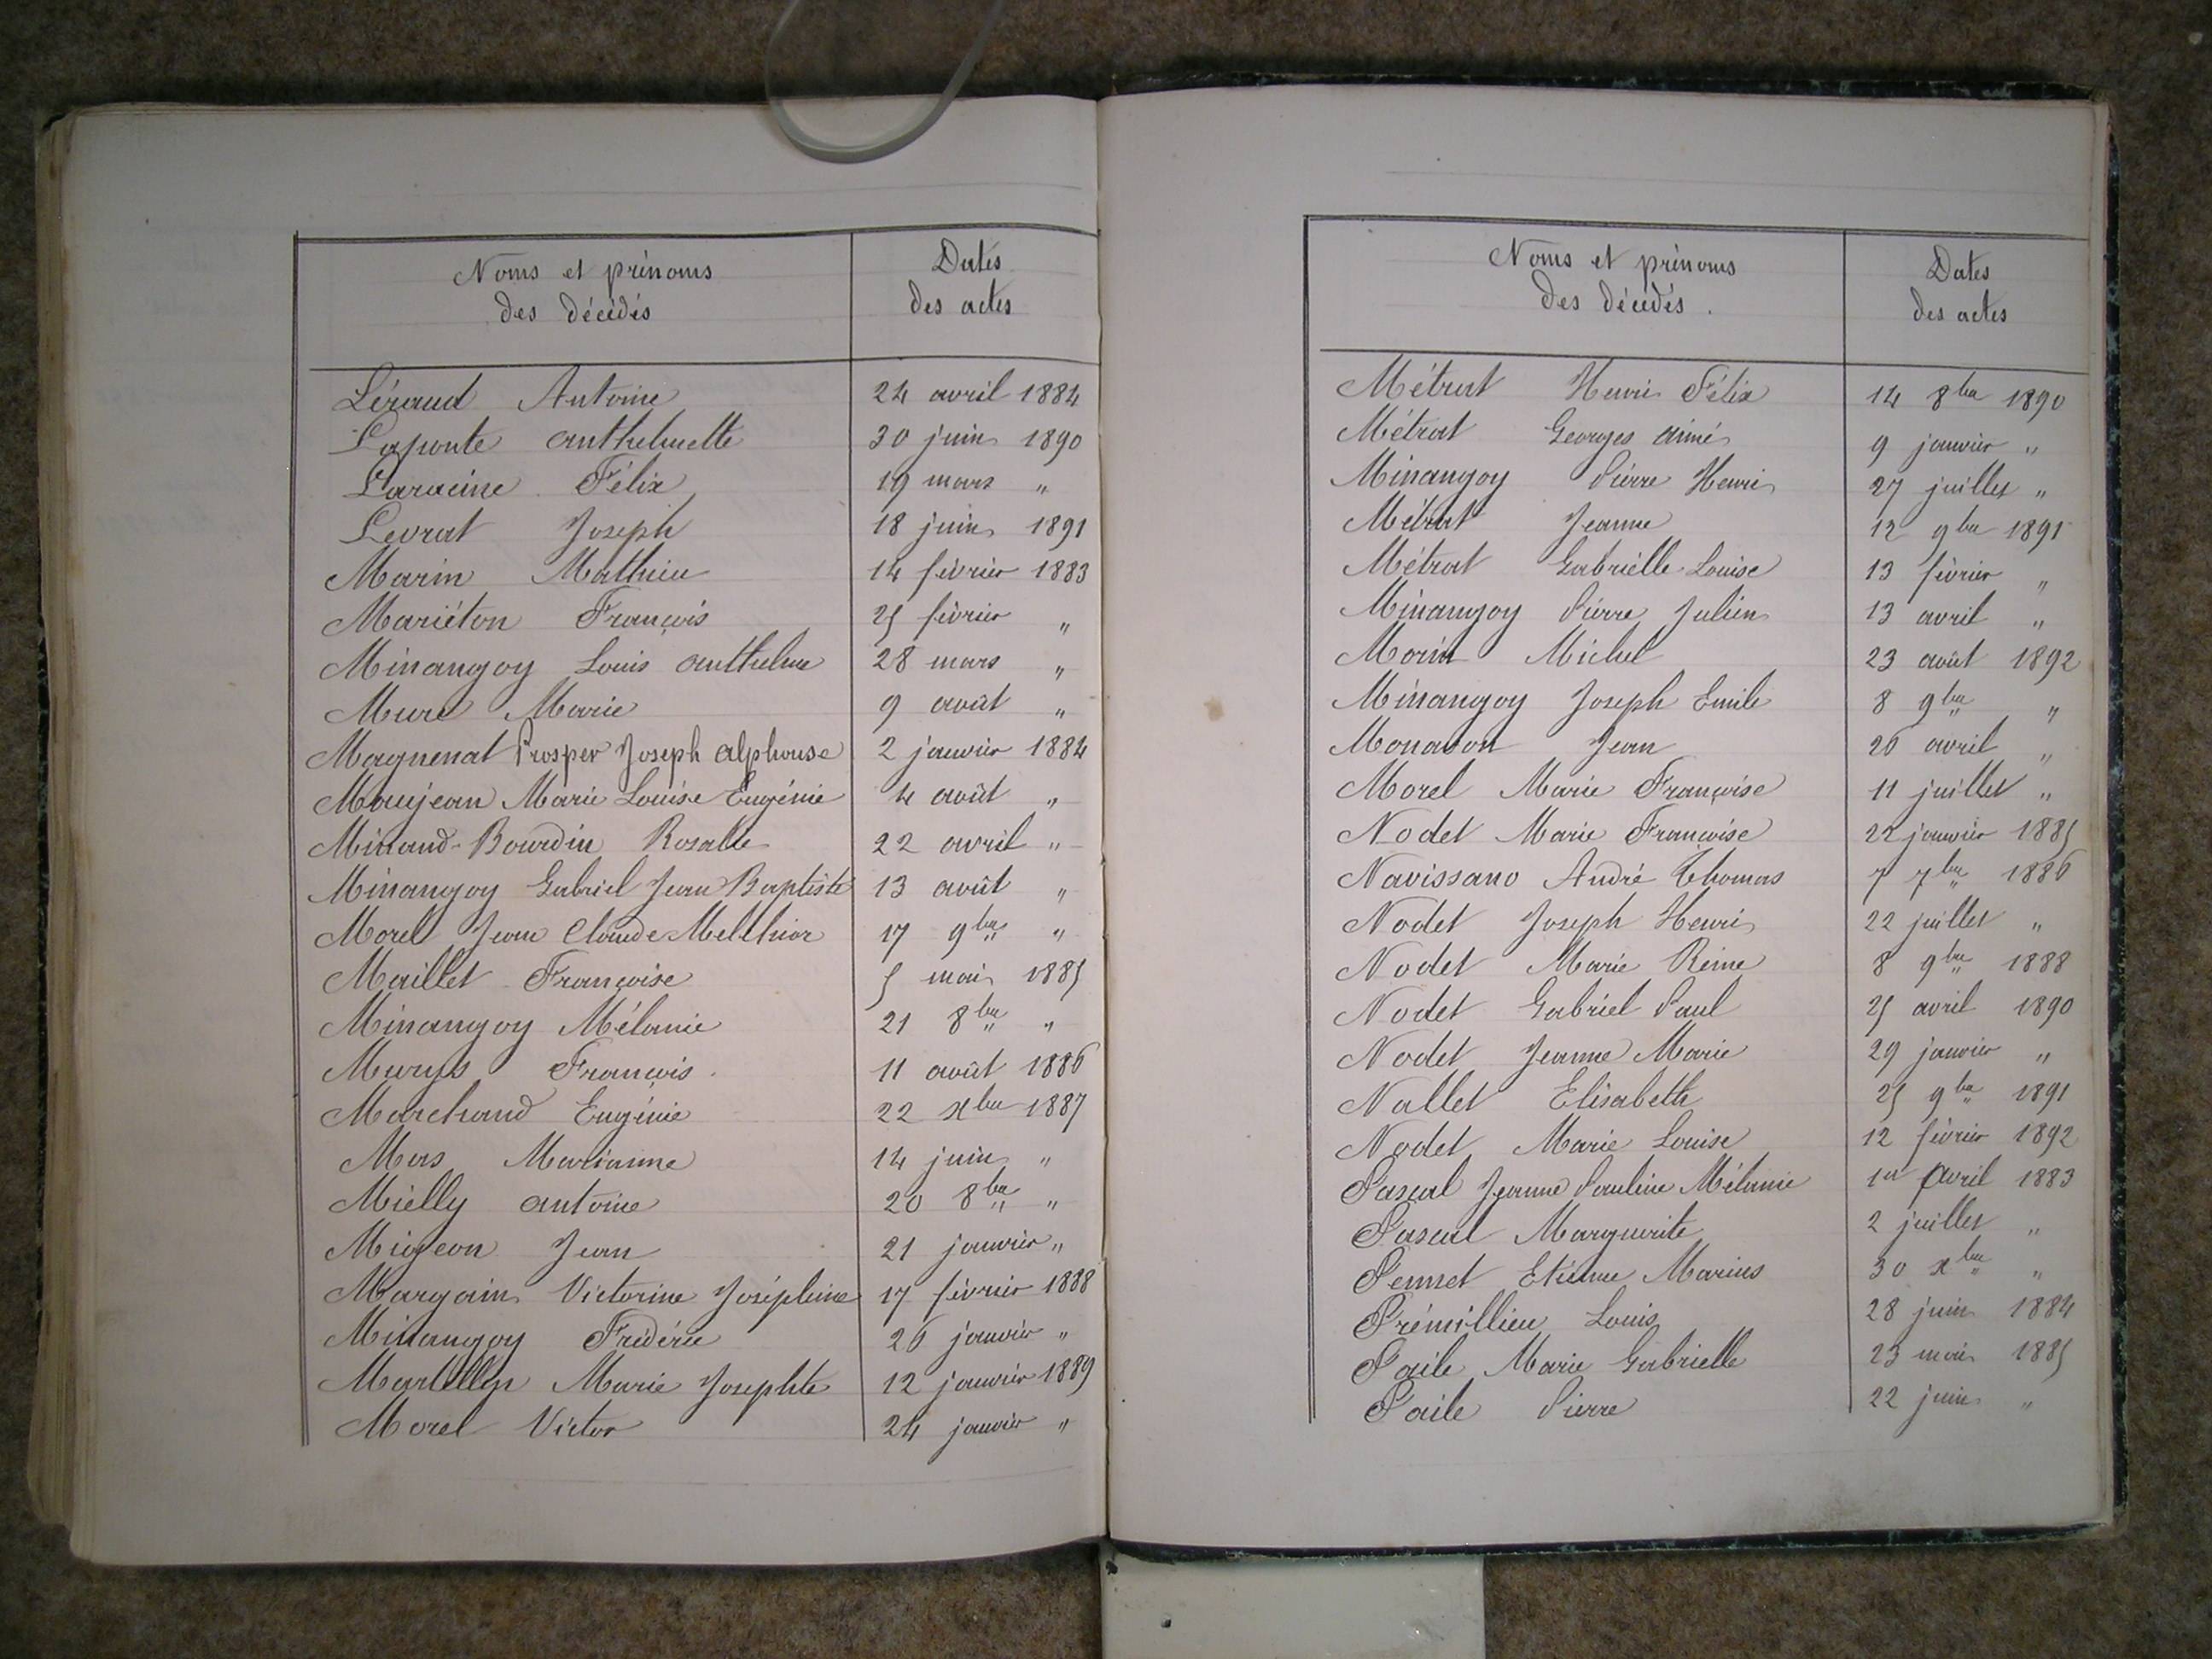 Noms et prénoms
des décédés
Dates
des actes
Léraud Antoine 24 avril 1884
Laponte anthelmette 30 juin 1890
Laracine Félix 19 mars "
Levrat Joseph 18 juin 1891
Marin Mathieu 14 février 1883
Mariéton François 25 février "
Minangoy Louis anthelme 28 mars "
Mure Marie 9 août "
Magnenat Prosper Joseph alphonse 2 janvier 1884
Maujean Marie Louise Eugénie 4 août "
Minaud-Bourdin Rosalie 22 avril "
Minangoy Gabriel Jean Baptiste 13 août "
Morel Jean Claude Melchior 17 9bre "
Maillet Françoise 5 mai 1885
Minangoy Mélanie 21 8bre "
Murys François 11 août 1886
Marchand Eugénie 22 xbre 1887
Mas Marianne 14 juin "
Mielly antoine 20 8bre "
Migeon Jean 21 janvier "
Margain Victorine Joséphine 17 février 1888
Minangoy Frédéric 26 janvier "
Martellin Marie Josephte 12 janvier 1889
Morel Victor 24 janvier "
Noms et prénoms
des décédés.
Dates
des actes
Métrat Henri Félix 14 8bre 1890
Métrat Georges aimé 9 janvier "
Minangoy Pierre Henri 27 juillet "
Métrat Jeanne 12 9bre 1891
Métrat Gabrielle Louise 13 février "
Minangoy Pierre Julien 13 avril "
Morin Michel 23 août 1892
Minangoy Joseph Emile 8 9bre "
Monavon Jean 26 avril "
Morel Marie Françoise 11 juillet "
Nodet Marie Françoise 22 janvier 1885
Navissano André Thomas 7 7bre 1886
Nodet Joseph Henri 22 juillet "
Nodet Marie Reine 8 9bre 1888
Nodet Gabriel Paul 25 avril 1890
Nodet Jeanne Marie 29 janvier "
Nallet Elisabeth 25 9bre 1891
Nodet Marie Louise 12 février 1892
Pascal Jeanne Pauline Mélanie 1er avril 1883
Pascal Marguerite 2 juillet "
Pennet Etienne Marius 30 xbre "
Prémillieu Louis 28 juin 1884
Paile Marie Gabrielle 23 mai 1885
Paile Pierre 22 juin "